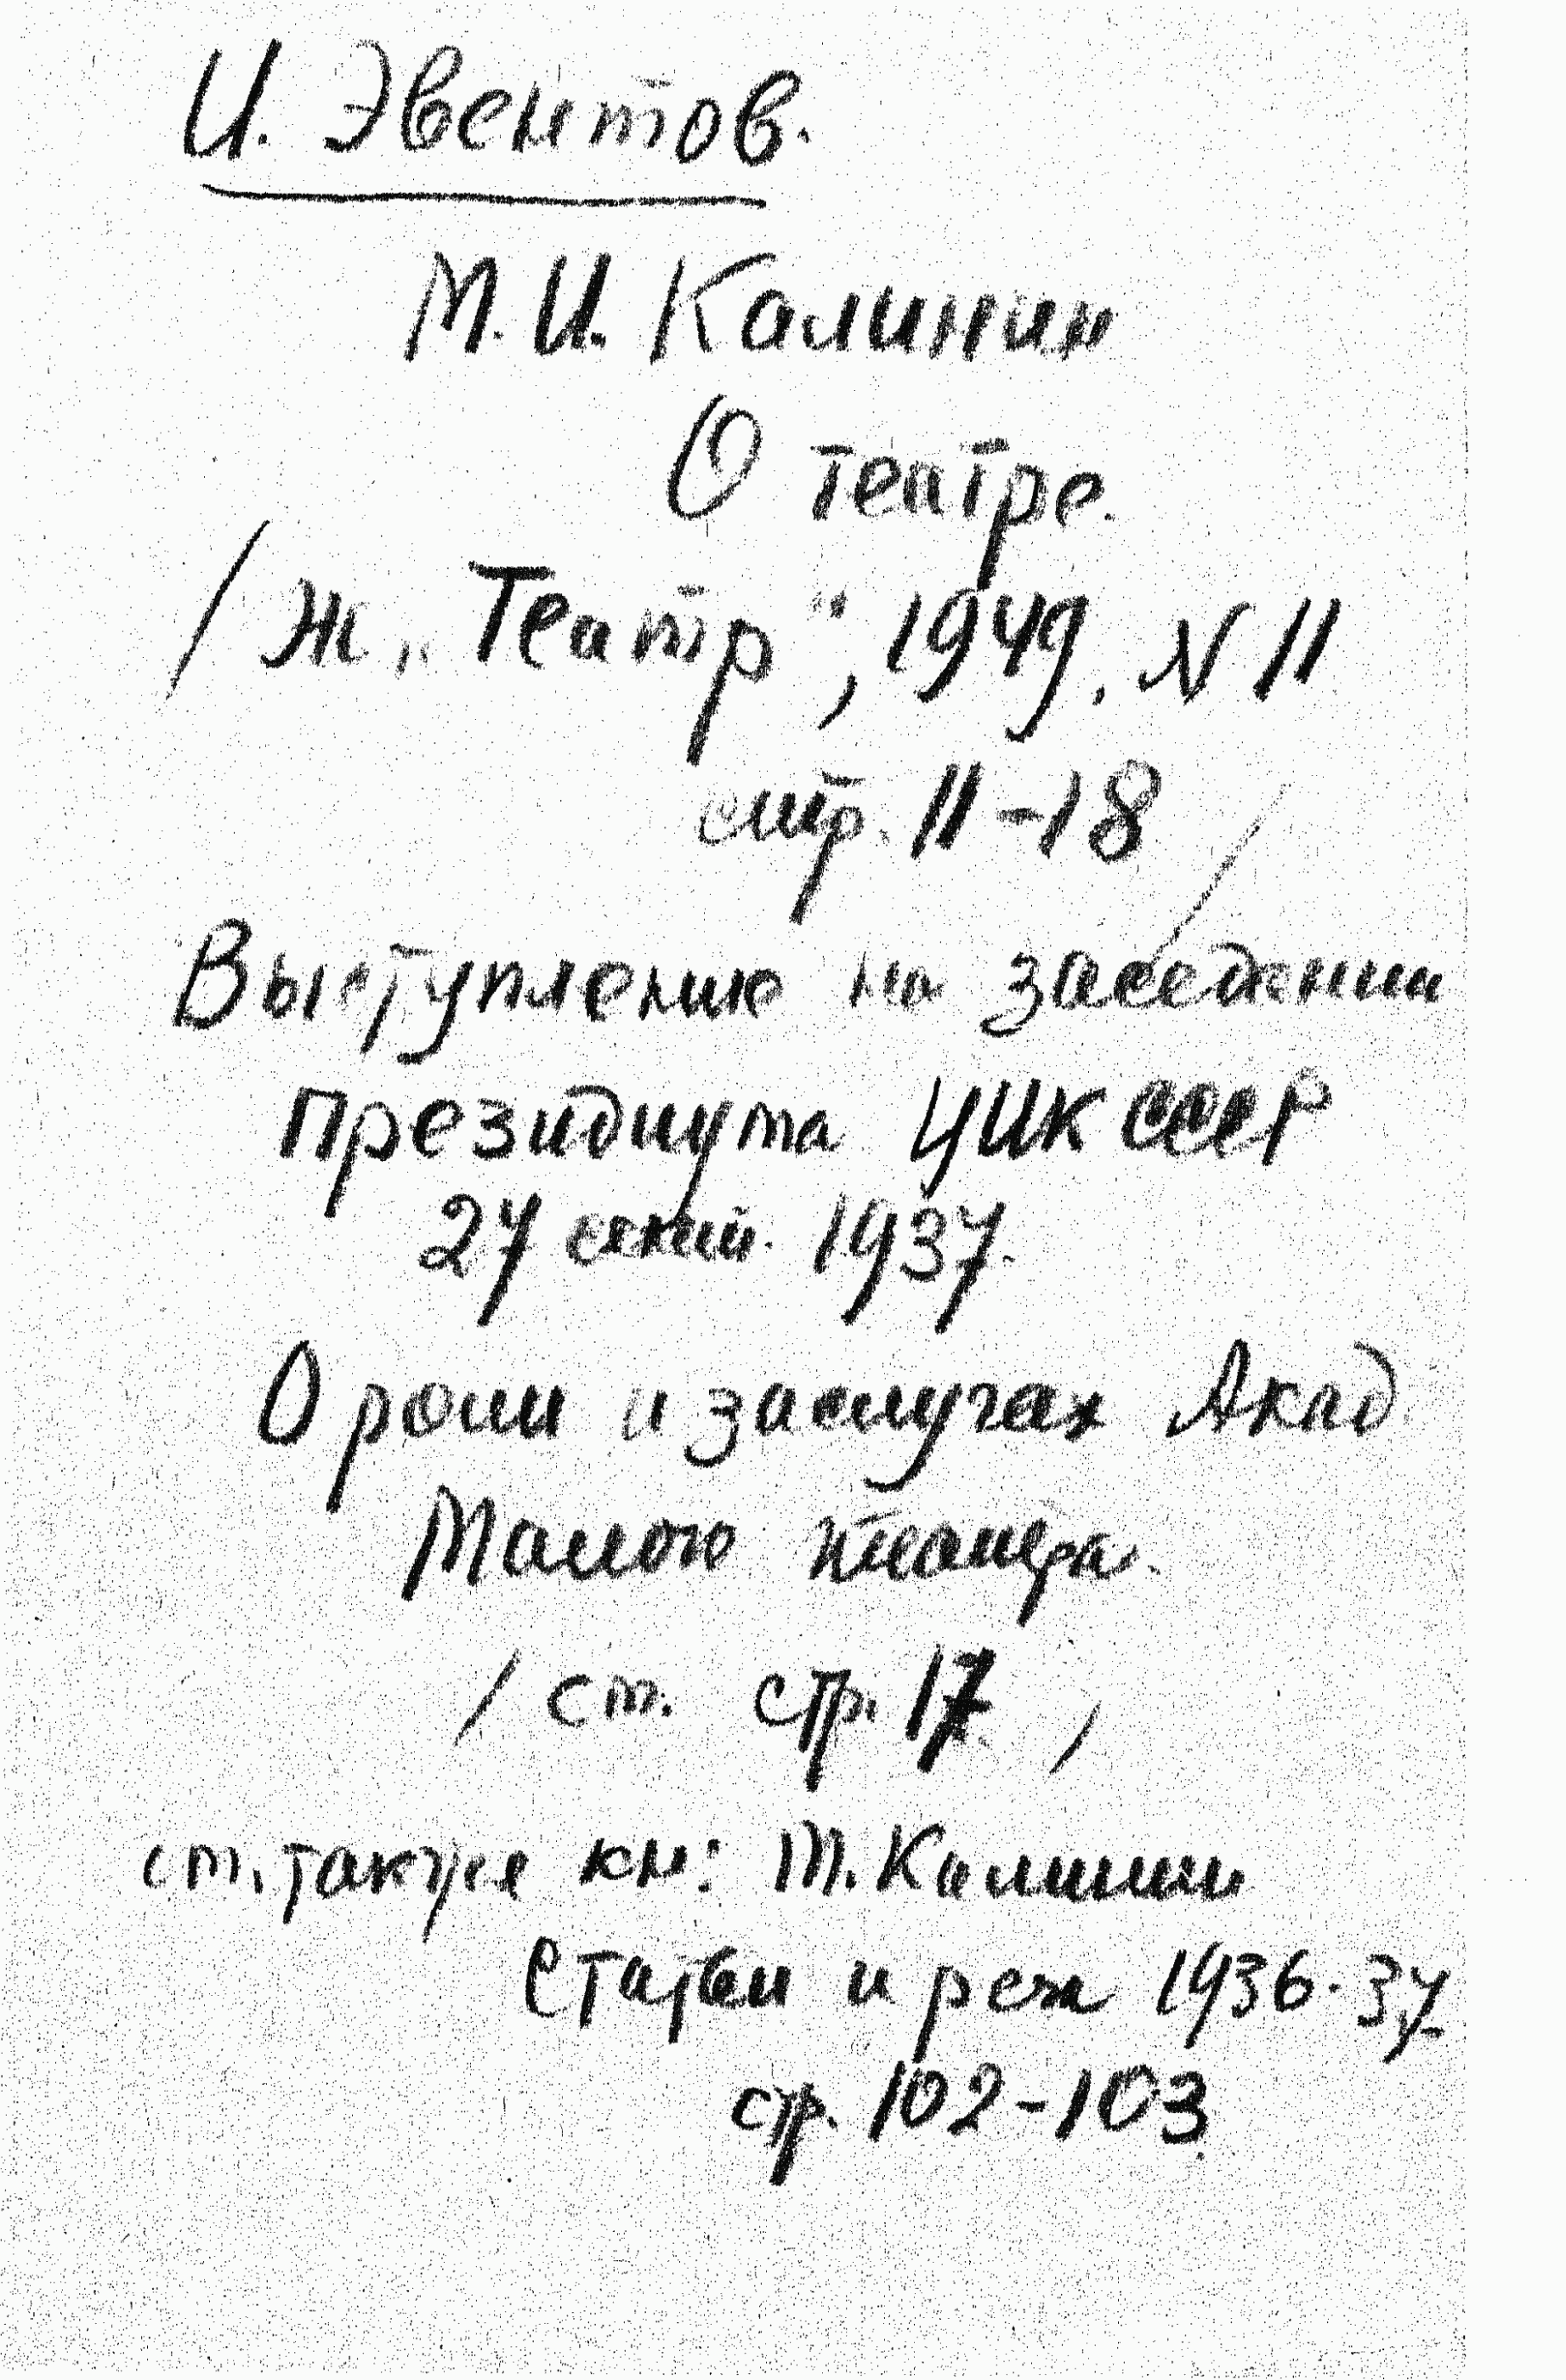 И. Эвентов.
М. И. Калинин
О театре.
/ Ж. „Театр“, 1949. N 11
стр. 11-18 /
Выступление на заседании
Президиума ЦИК СССР
27 сентяб. 1937.
О роли и заслугах Акад
Малого театра.
/ см. стр. 17 /
см. также кн: М. Калинин
Статьи и речи 1936-37
стр. 102-103